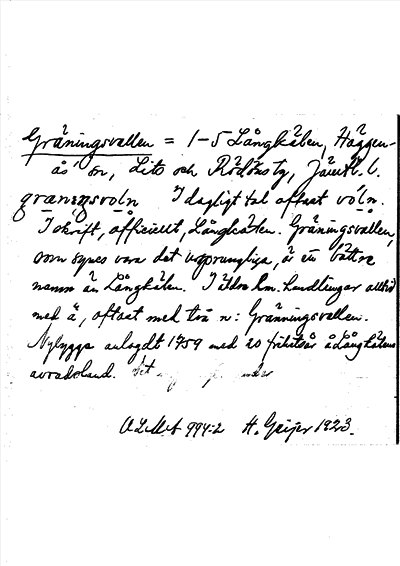 Gräningsvallen = 1-5 Långkälen, Häggen-
ås' sn, Lits och Rödöns tg, Jämtl. l.
I dagligt tal oftast
I skrift, officiellt, Långkälen. Gräningsvallen,
som synes vara det ursprungliga, är ett bättre
namn än Långkälen. I äldre kam. handlingar alltid
med ä, oftast med två n: Gränningsvallen.
Nybygge anlagdt 1759 med 20 frihetsår å Långkälens
avradsland. Det
ULMA 994:2 H. Geijer 1923.